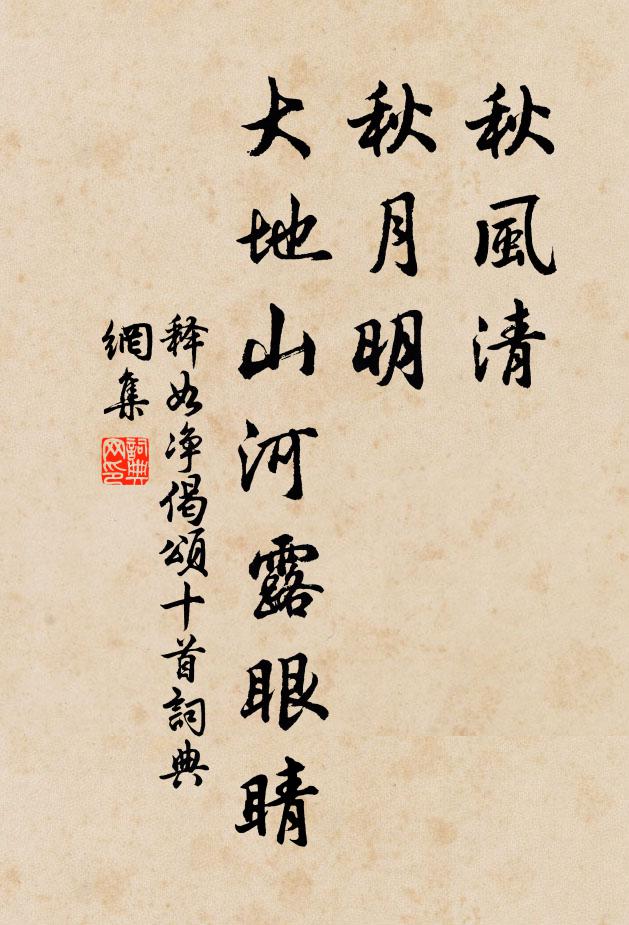 秋風清
秋月明
大地山河露眼睛
释如净偈頌十首詞典
網集
詞典网印